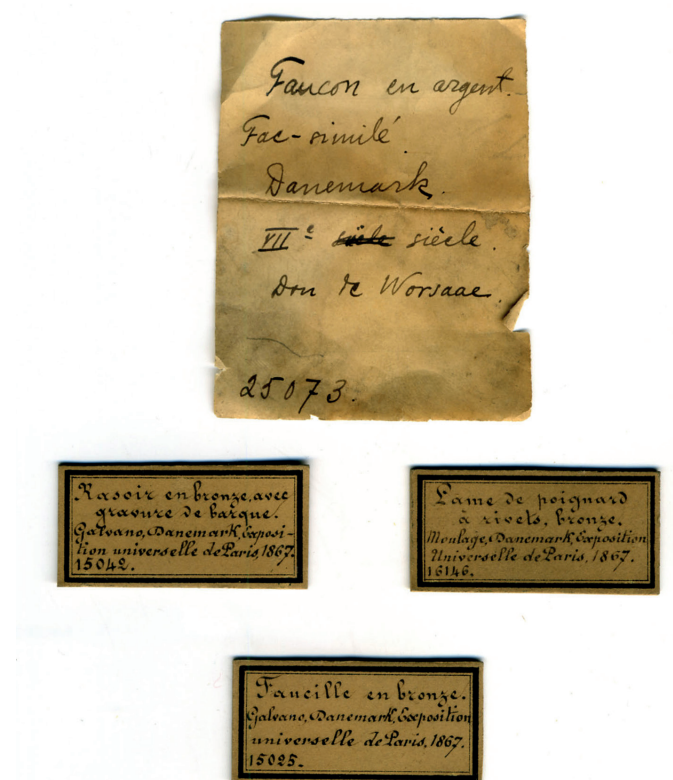 Faucon en argent.
Fac-similé
Danemark.
VIIe siècle.
Don de Worsaae.
25073.
Rasoir en bronze, avec
gravure de barque.
Galvano, Danemark, Exposi-
tion universelle de Paris, 1867.
15042.
Lame de poignard
à rivets, bronze.
Moulage, Danemark, Exposition
Universelle de Paris, 1867.
16146.
Faucille en bronze.
Galvano, Danemark, Exposition
universelle de Paris, 1867.
15025.